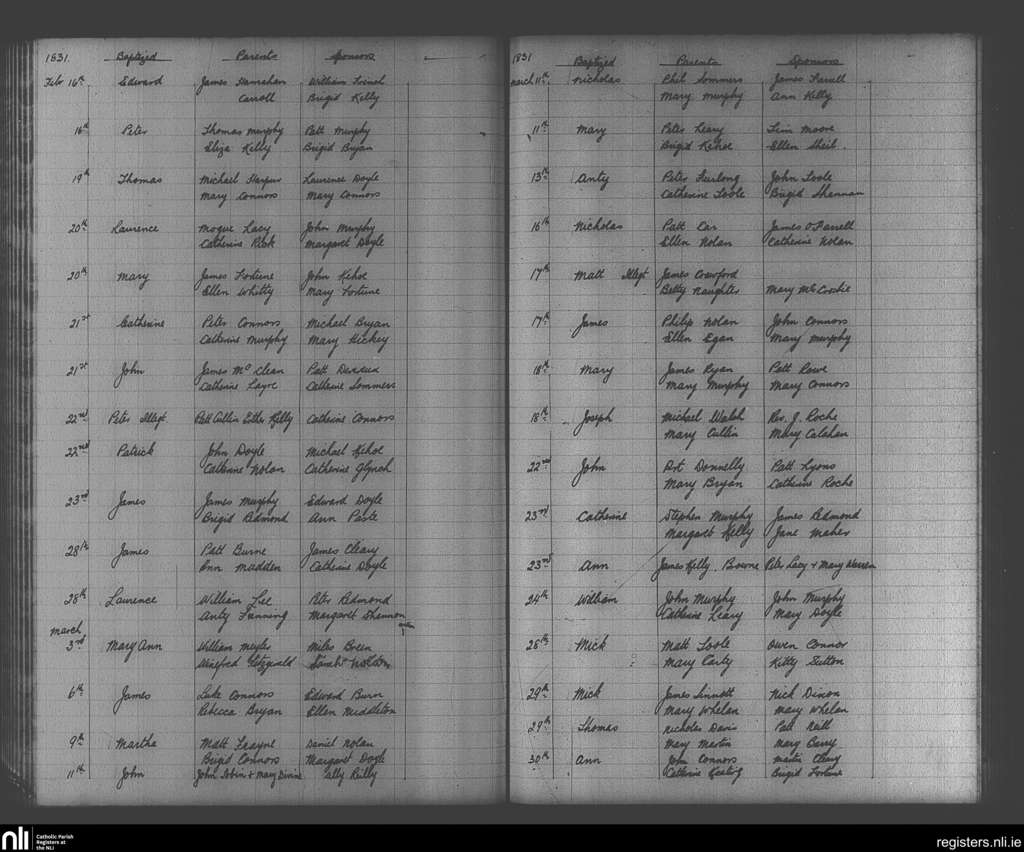 1831. Baptized Parents Sponsors
Feb 16th Edward James Hanrahan William
Carroll Brigid Kelly
16th Peter Thomas Murphy Patt Murphy
Eliza Kelly Brigid Bryan
19th Thomas Michael Laurence Doyle
Mary Connors Mary Connors
20th Laurence Mogue Lacy John Murphy
Catherine Margaret Doyle
20th Mary James Fortune John Kehoe
Ellen Whitty Mary Fortune
21st Catherine Peter Connors Michael Bryan
Catherine Murphy Mary Hickey
21st John James McClean Patt Devereux
Catherine Catherine Sommers
22nd Peter Illegt Patt Cullin Esther Kelly Catherine Connors
22nd Patrick John Doyle Michael Kehoe
Catherine Nolan Catherine Glynch
23rd James James Murphy Edward Doyle
Brigid Redmond Ann
28th James Patt Burne James Cleary
Ann Madden Catherine Doyle
28th Laurence William Lee Peter Redmond
Anty Fanning Margaret Shannon
March
3rd Mary Ann William Meyler Miles Breen
Winefred Fitzgerald
6th James Luke Connors Edward Burn
Rebecca Bryan Ellen Middleton
9th Martha Matt Frayne Daniel Nolan
Brigid Connors Margaret Doyle
11th John John Tobin + Mary Ally Reilly
1831 Baptized Parents Sponsors
March 11th. Nicholas Phil Sommers James Farrell
Mary Murphy Ann Kelly
11th Mary Peter Leary Tim Moore
Brigid Kehoe Ellen Sheil.
13th Anty Peter Furlong John Toole
Catherine Toole Brigid Shannan
16th Nicholas Patt Car James O'Farrell
Ellen Nolan Catherine Nolan
17th Matt Illegt James Crawford
Betty Naughter Mary McCrosbie
17th James Philip Nolan John Connors
Ellen Egan Mary Murphy
18th Mary James Ryan Patt Rowe
Mary Murphy Mary Connors
18th Joseph Michael Walsh Rev. J. Roche
Mary Cullin Mary Calahan
22nd John Art Donnelly Patt Lyons
Mary Bryan Catherine Roche
23rd Catherine Stephen Murphy James Redmond
Margaret Kelly Jane Maher
23rd Ann James Kelly. Bowne Peter Lacy + Mary Warren
24th William John Murphy John Murphy
Catherine Leary Mary Doyle
28th Mick Matt Toole Owen Connor
Mary Carty Kitty Sutton
29th Mick James Sinnott Nick Dixon
Mary Whelan Mary Whelan
29th Thomas Nicholas Davis Patt Neill
Mary Martin Mary Carry
30th Ann John Connors Cleary
Catherine Keating Brigid Fortune
nli Catholic Parish
Registers at
the NLI
registers.nli.ie